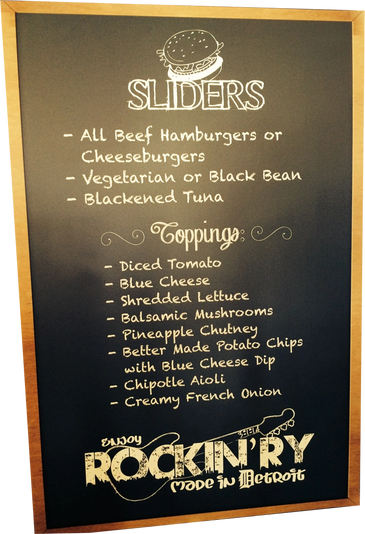 SLIDERS
- All Beef Hamburgers or
Cheeseburgers
- Vegetarian or Black Bean
- Blackened Tuna
Toppings:
- Diced Tomato
- Blue Cheese
- Shredded Lettuce
- Balsamic Mushrooms
- Pineapple Chutney
- Better Made Potato Chips
with Blue Cheese Dip
- Chipotle Aioli
- Creamy French Onion
ENJOY
ROCKIN'RY
Made in Detroit